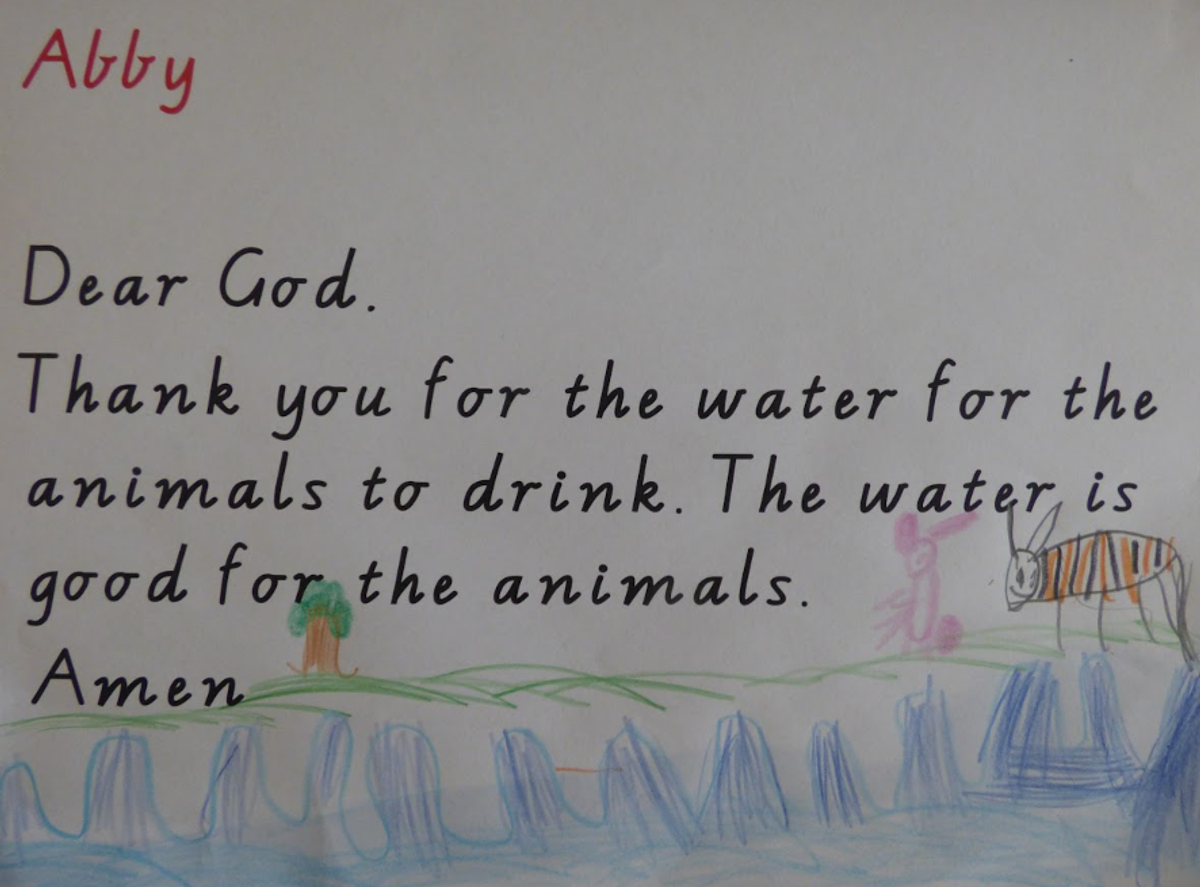 Abby
Dear God.
Thank you for the water for the
animals to drink. The water is
good for the animals.
Amen